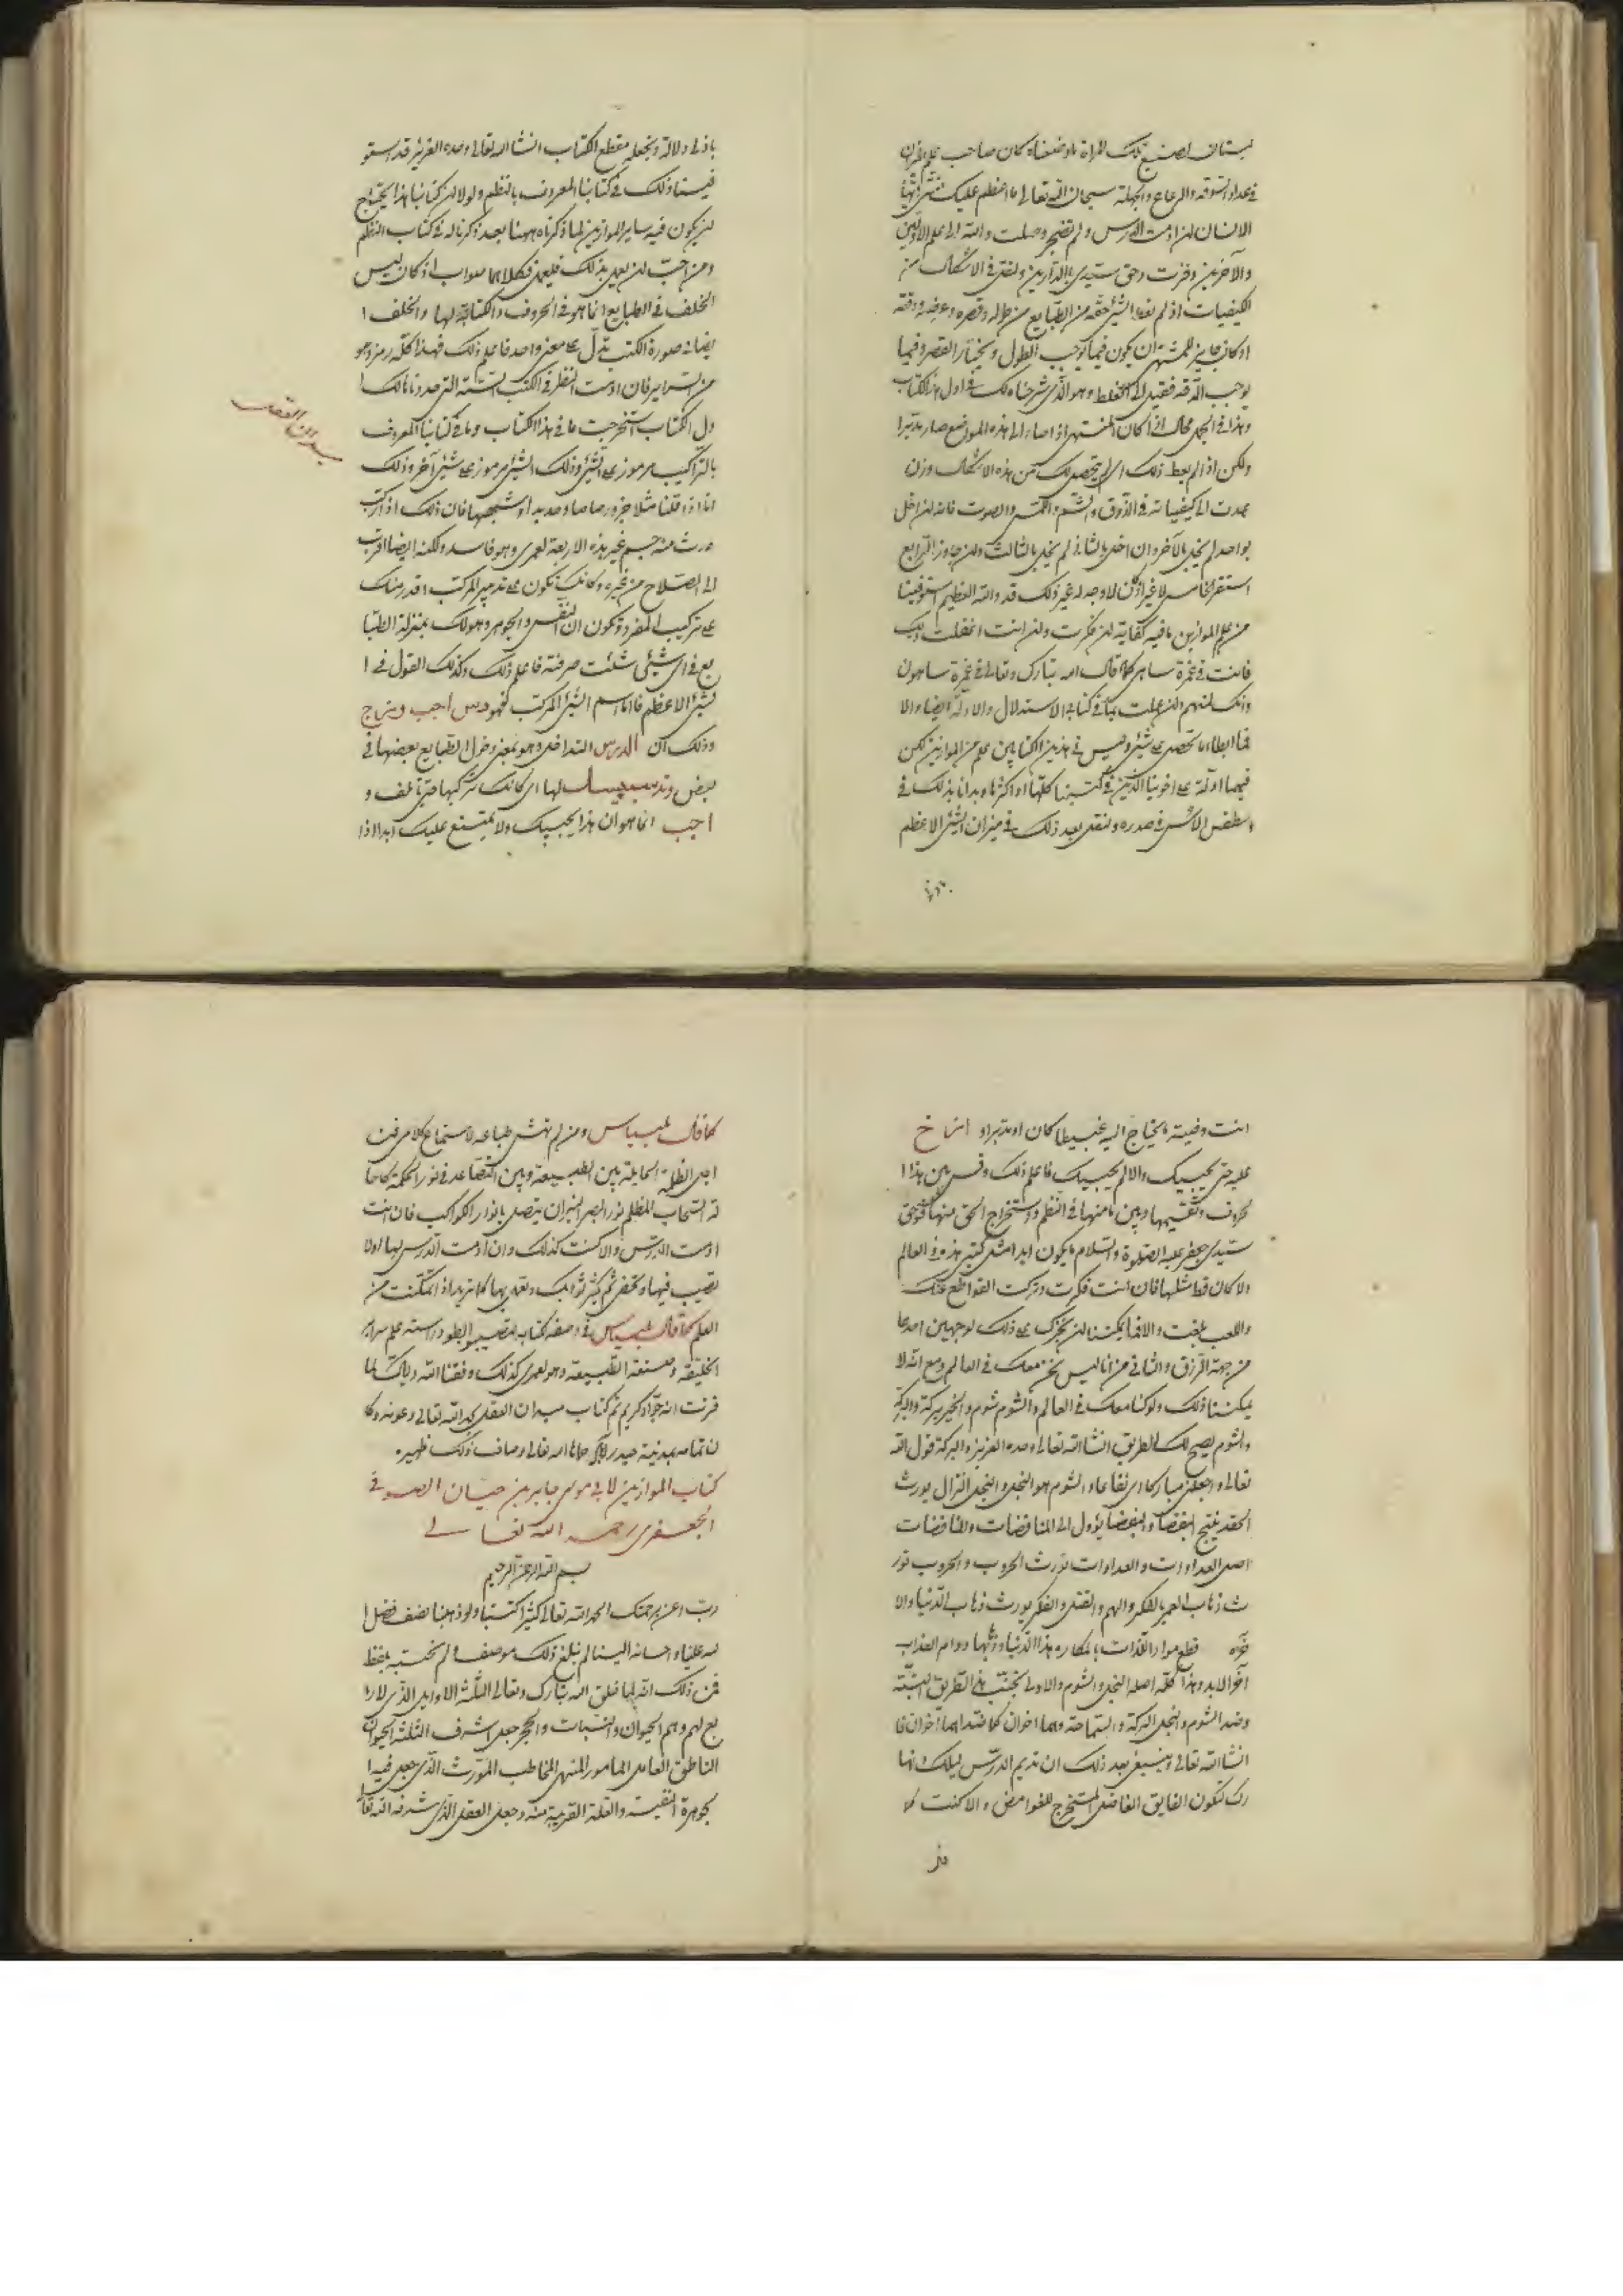 في عداد السوقة والرعاع والجهلة سبحان الله تعالى ما اعظم عليك
الانسان ان ادمت الدرس ولم تضجر وصلت والله الى علم الاولين
والآخرين وفزت وحق سيدي بالدارين ولنقل في الاشكال من
الكيفيات اذ لم نعط الشي حقه من الطبايع من طوله وقصره وعرضه ودقته
اذ كان جايز للمشتهي ان يكون فيما يوجب الطول ويختار القصر وفيما
يوجب الدقة فيميل الى الغلظ وهو الذي شرحناه لك في اول هذا الكتاب
وهذا في الحمل محال اذ كان المشتهي اذا صار الى هذه المواضع صار مدبرا
ولكن اذا لم يعط ذلك اي لم يتحصل لك من هذه الاشكال وزن
عدت الى كيفياته في الذوق والشم واللمس والصوت فانه ان اخل
بواحد لم يخل بالآخر وان اخل بالثاني لم يخل بالثالث ولان جاوز الرابع
استقر الخامس لا غير اذ كان لا وجه له غير ذلك قد والله العظيم استوفينا
من علم الموازين ما فيه كفاية ان فكرت وان انت اغفلت ذلك
فانت في غمرة ساهي كما قال الله تبارك وتعالى في غمرة ساهون
وانك لمنهم ان عملت بما في كتابه الاستدلال والادلة ايضا والا
فما ابطا ما تحصل على شي وليس في هذين الكتابين علم من الموازين لكن
فيهما ادلة على اخوتها الذين في كتبنا كلها او اكثرها وبدانا بذلك في
اسطقس الاس في صدره ولنقل بعد ذلك في ميزان الشي الاعظم
باذلى دلالة ونجعله مقطع الكتاب انشا الله تعالى وحده العزيز قد استو
فينا ذلك في كتابنا المعروف بالنظم ولولا ان كتابنا هذا يحتاج
ان يكون فيه ساير الموازين لما ذكرناه ههنا بعد ذكرنا له في كتاب النظم
ومن احب ان يعمل بذلك فليعمل فكلاهما صواب اذ كان ليس
الخلف في الطبايع انما هو في الحروف والكتابة لها والخلف ا
يضا في صورة الكتب يدل على معنى واحد فاعلم ذلك فهذا كله رمز وهو
من السراير فان ادمت النظر في الكتب الستة التي حددناها لك ا
ول الكتاب استخرجت ما في هذا الكتاب وما في كتابنا المعروف
بالتراكيب مرموز على الشي وذلك الشي مرموز على شي آخر وذلك
انا اذا قلنا مثلا خذ رصاصا وحديدا فان ذلك اذا ركب
حدث منه جسم غير هذه الاربعة لعمري وهو فاسد ولكنه ايضا اقرب
الى الصلاح من غيره وكانك تكون على تدبير المركب اقدر منك
على تركيب المفرد وتكون ان النفس والجوهر وهو لك بمنزلة الطبا
يع في اي شي شئت صرفته فاعلم ذلك وكذلك القول في ا
لشي الاعظم فاما اسم الشي المركب فهو درس اجب
وذلك ان الدرس التداخل وهو بمعنى دخول الطبايع بعضها في
بعض لها اي كانك تركبها حتى تالف و
اجب انما هو ان هذا يجيبك ولا يمتنع عليك ابدا اذا
ميدان العقل
انت وفيته ما يحتاج اليه غبيطا كان او مدبرا و
عليه حتى يجيبك والا لم يجيبك فاعلم ذلك وقس بين هذا ا
لحروف وتقسيمها وبين ما منها في النظم واستخراج الحق منها فوحق
سيدي جعفر عليه الصلوة والسلام ما يكون ابدا مثل كتبي هذه في العالم
ولا كان قط مثلها فان انت فكرت وتركت القواطع عنك
واللعب بلغت والا فما يمكننا ان نجزك على ذلك لوجهين احدهما
من جهة الرزق والثاني من انا ليس نحن معك في العالم ومع انه لا
يمكننا ذلك ولو كنا معك في العالم والشوم شوم والخير بركة والبركة
والشوم يصح لك الطريق انشا الله تعالى وحده العزيز والبركة قول الله
تعالى واجعلني مباركا اي نفاعا والشوم هو البخل والبخل انزال يورث
الحقد ينتج البغضا والبغضا يؤول الى المناقضات والمناقضات
اصل العداوات والعداوات تورث الحروب والحروب تور
ث ذهاب العمر بالفكر والهم والقتل والفكر يورث ذهاب الدنيا والا
خرة قطع مواد اللذات بالمكاره هذا الدنيا ودوام العذاب
آخر الابد وهذا كله اصله البخل والشوم والاولى تجنب هذا الطريق البتة
وضد الشوم والبخل البركة والسماحة وهما اخوان كما ضداهما اخوان فا
انشا الله تعالى وينبغي بعد ذلك ان تديم الدرس ليلك ونها
رك لتكون الفايق الفاضل المستخرج للغوامض والا كنت كما
كما قال ومن لم تهش طباعه لاستماع كلامي فمن
اجل الظلمة الحايلة بين الطبيعة وبين التصاعد في نور الحكمة كاحا
لة السحاب المظلم نور البصر النيران يتصل بانوار الكواكب فان انت
ادمت الدرس والا كنت كذلك وان ادمت الدرس لها اولا
تصيب فيها وتخفي ثم يكثر ثوابك وتعمل بها كما تريد اذ تمكنت من
العلم كما قال في وصفه كتابه انه علم سراير
الخليقة وصنعة الطبيعة وهو لعمري كذلك وفقنا الله واياك لما
فزت انه جواد كريم تم كتاب ميدان العقل بحمد الله تعالى وعونه وكا
ن تمامه بمدينة حيدرآباد حماها الله تعالى وصاف ذلك ظهير
كتاب الموازين لابي موسى جابر بن حيان الصوفي
الجعفري رحمه الله تعالى
بسم الله الرحمن الرحيم
رب اعن برحمتك الحمد لله تعالى كثيرا كتبنا ولو ذهبنا نصف فضل ا
لله علينا واحسانه الينا لم نبلغ ذلك موصف ولم نحسبه بلفظ
فمن ذلك انه لما خلق الله تبارك وتعالى الثلثة الاوايل الذي لا را
بع لهم وهم الحيوان والنبات والحجر جعل اشرف الثلثة الحيوان
الناطق العامل المامور المنهي المخاطب المورث الذي جعل فيه ا
لجوهرة النفيسة والعلة القريبة منه وجعل العقل الذي شرفه الله تعا